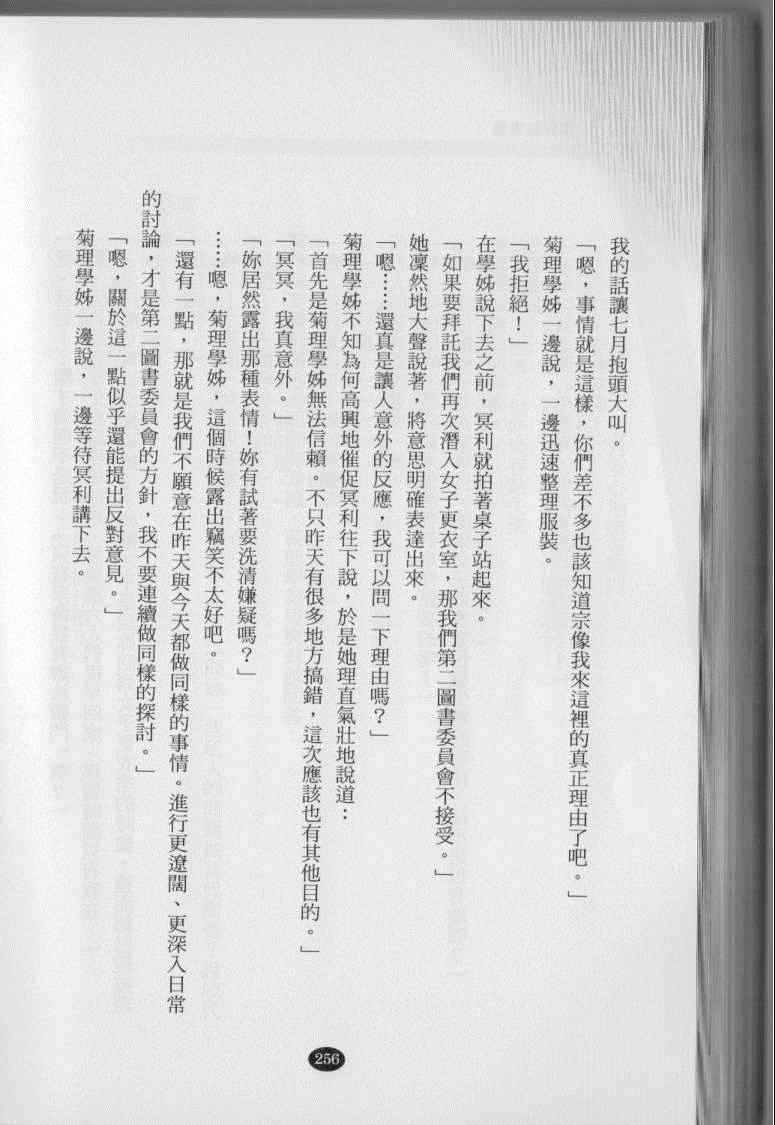 我的話讓七月抱頭大叫。
「嗯，事情就是這樣，你們差不多也該知道宗像我來這裡的真正理由了吧。」
菊理學姊一邊說，一邊迅速整理服裝。
「我拒絕！」
在學姊說下去之前，冥利就拍著桌子站起來。
「如果要拜託我們再次潛入女子更衣室，那我們第二圖書委員會不接受。」
她凜然地大聲說著，將意思明確表達出來。
「嗯……還真是讓人意外的反應，我可以問一下理由嗎？」
菊理學姊不知為何高興地催促冥利往下說，於是她理直氣壯地說道：
「首先是菊理學姊無法信賴。不只昨天有很多地方搞錯，這次應該也有其他目的。」
「冥冥，我真意外。」
「妳居然露出那種表情！妳有試著要洗清嫌疑嗎？」
……嗯，菊理學姊，這個時候露出竊笑不太好吧。
「還有一點，那就是我們不願意在昨天與今天都做同樣的事情。進行更遼闊、更深入日常
的討論，才是第二圖書委員會的方針，我不要連續做同樣的探討。」
「嗯，關於這一點似乎還能提出反對意見。」
菊理學姊一邊說，一邊等待冥利講下去。
256